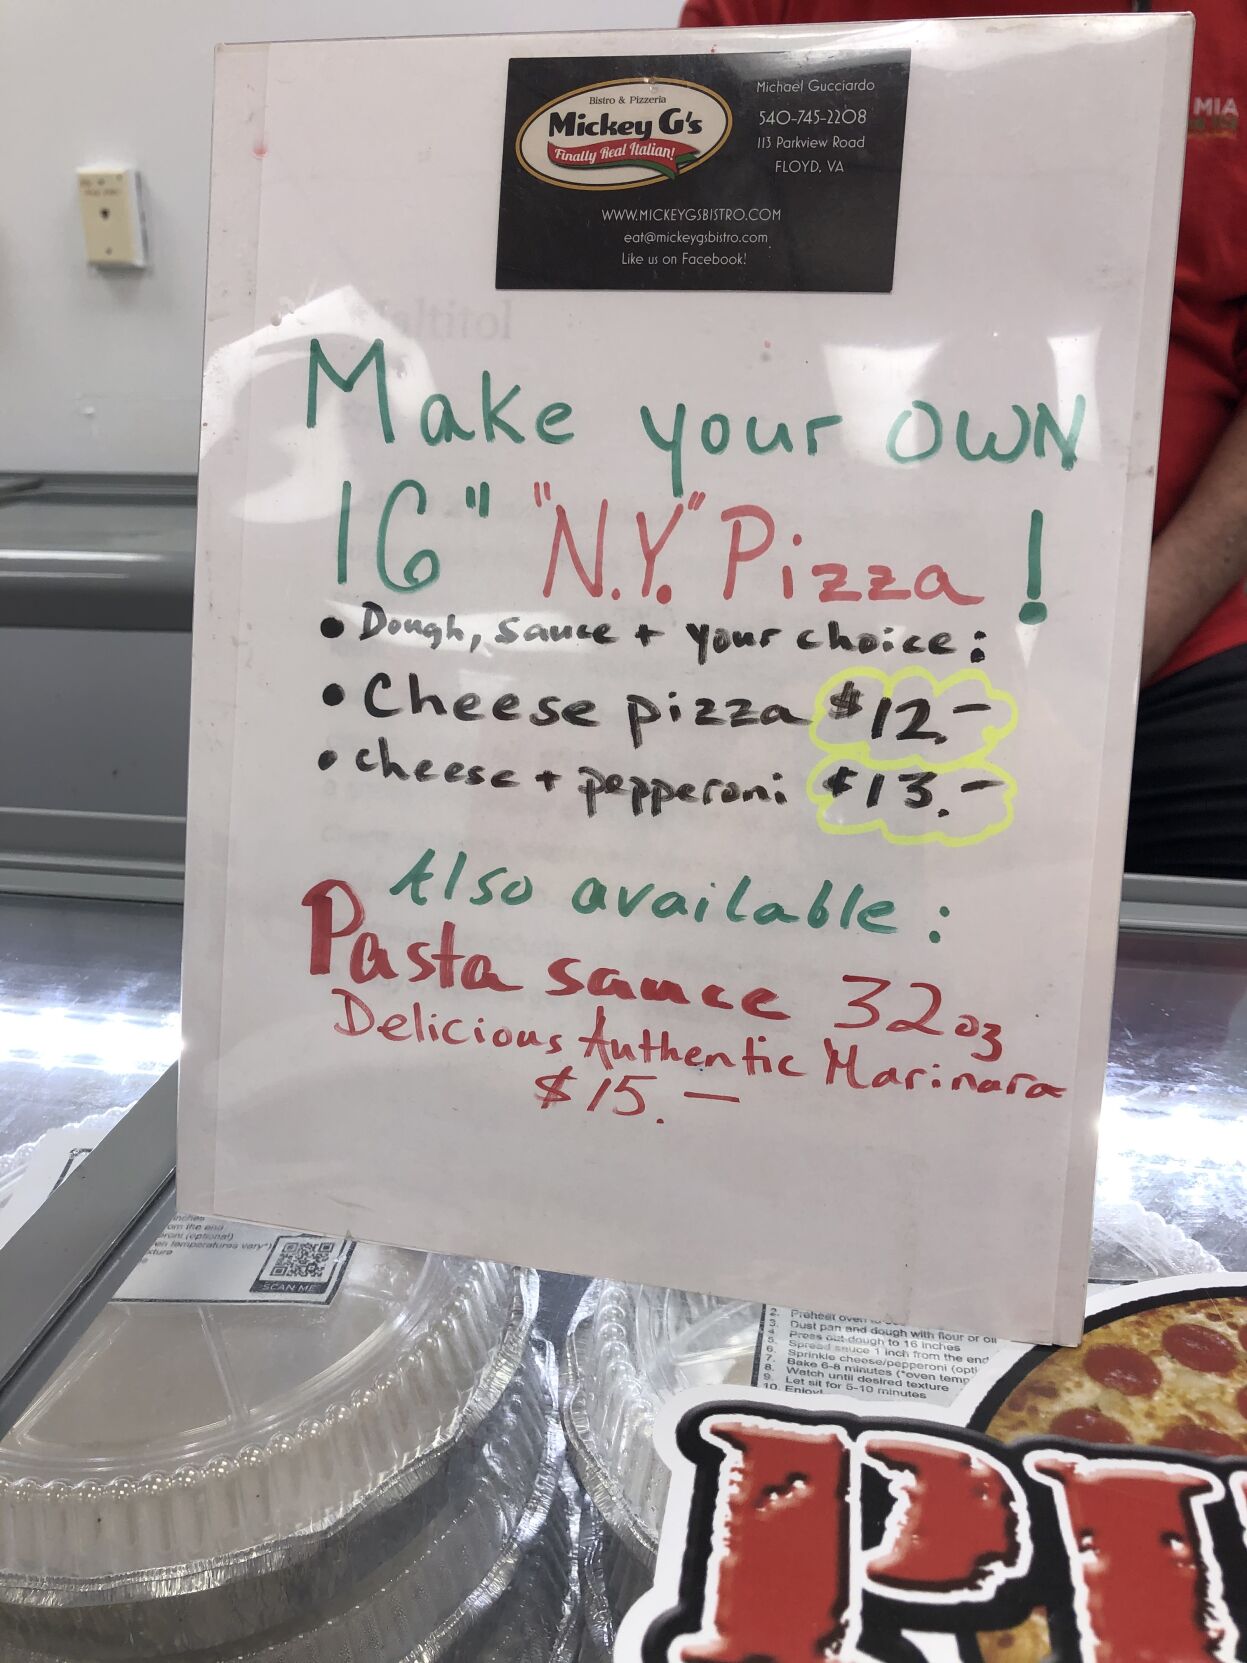 Bistro & Pizzeria
Mickey G's
Finally Real Italian!
Michael Gucciardo
540-745-2208
113 Parkview Road
FLOYD, VA
WWW.MICKEYGSBISTRO.COM
eat@mickeygsbistro.com
Like us on Facebook!
MIA
Maltitol
Make your OWN
16" "N.Y." Pizza !
• Dough, sauce + your choice:
• Cheese pizza $12.-
• cheese + pepperoni $13.-
Also available:
Pasta sauce 32oz
Delicious Authentic Marinara
$15.-
inches
om the end
roni (optional)
en temperatures vary*)
xture
SCAN ME
2. Preheat oven
3. Dust pan and dough with flour or oil
4. Press out dough to 16 inches
5. Spread sauce 1 inch from the end
6. Sprinkle cheese/pepperoni (opti
7. Bake 6-8 minutes (*oven temp
8. Watch until desired texture
9. Let sit for 5-10 minutes
10. Enjoy!
PI